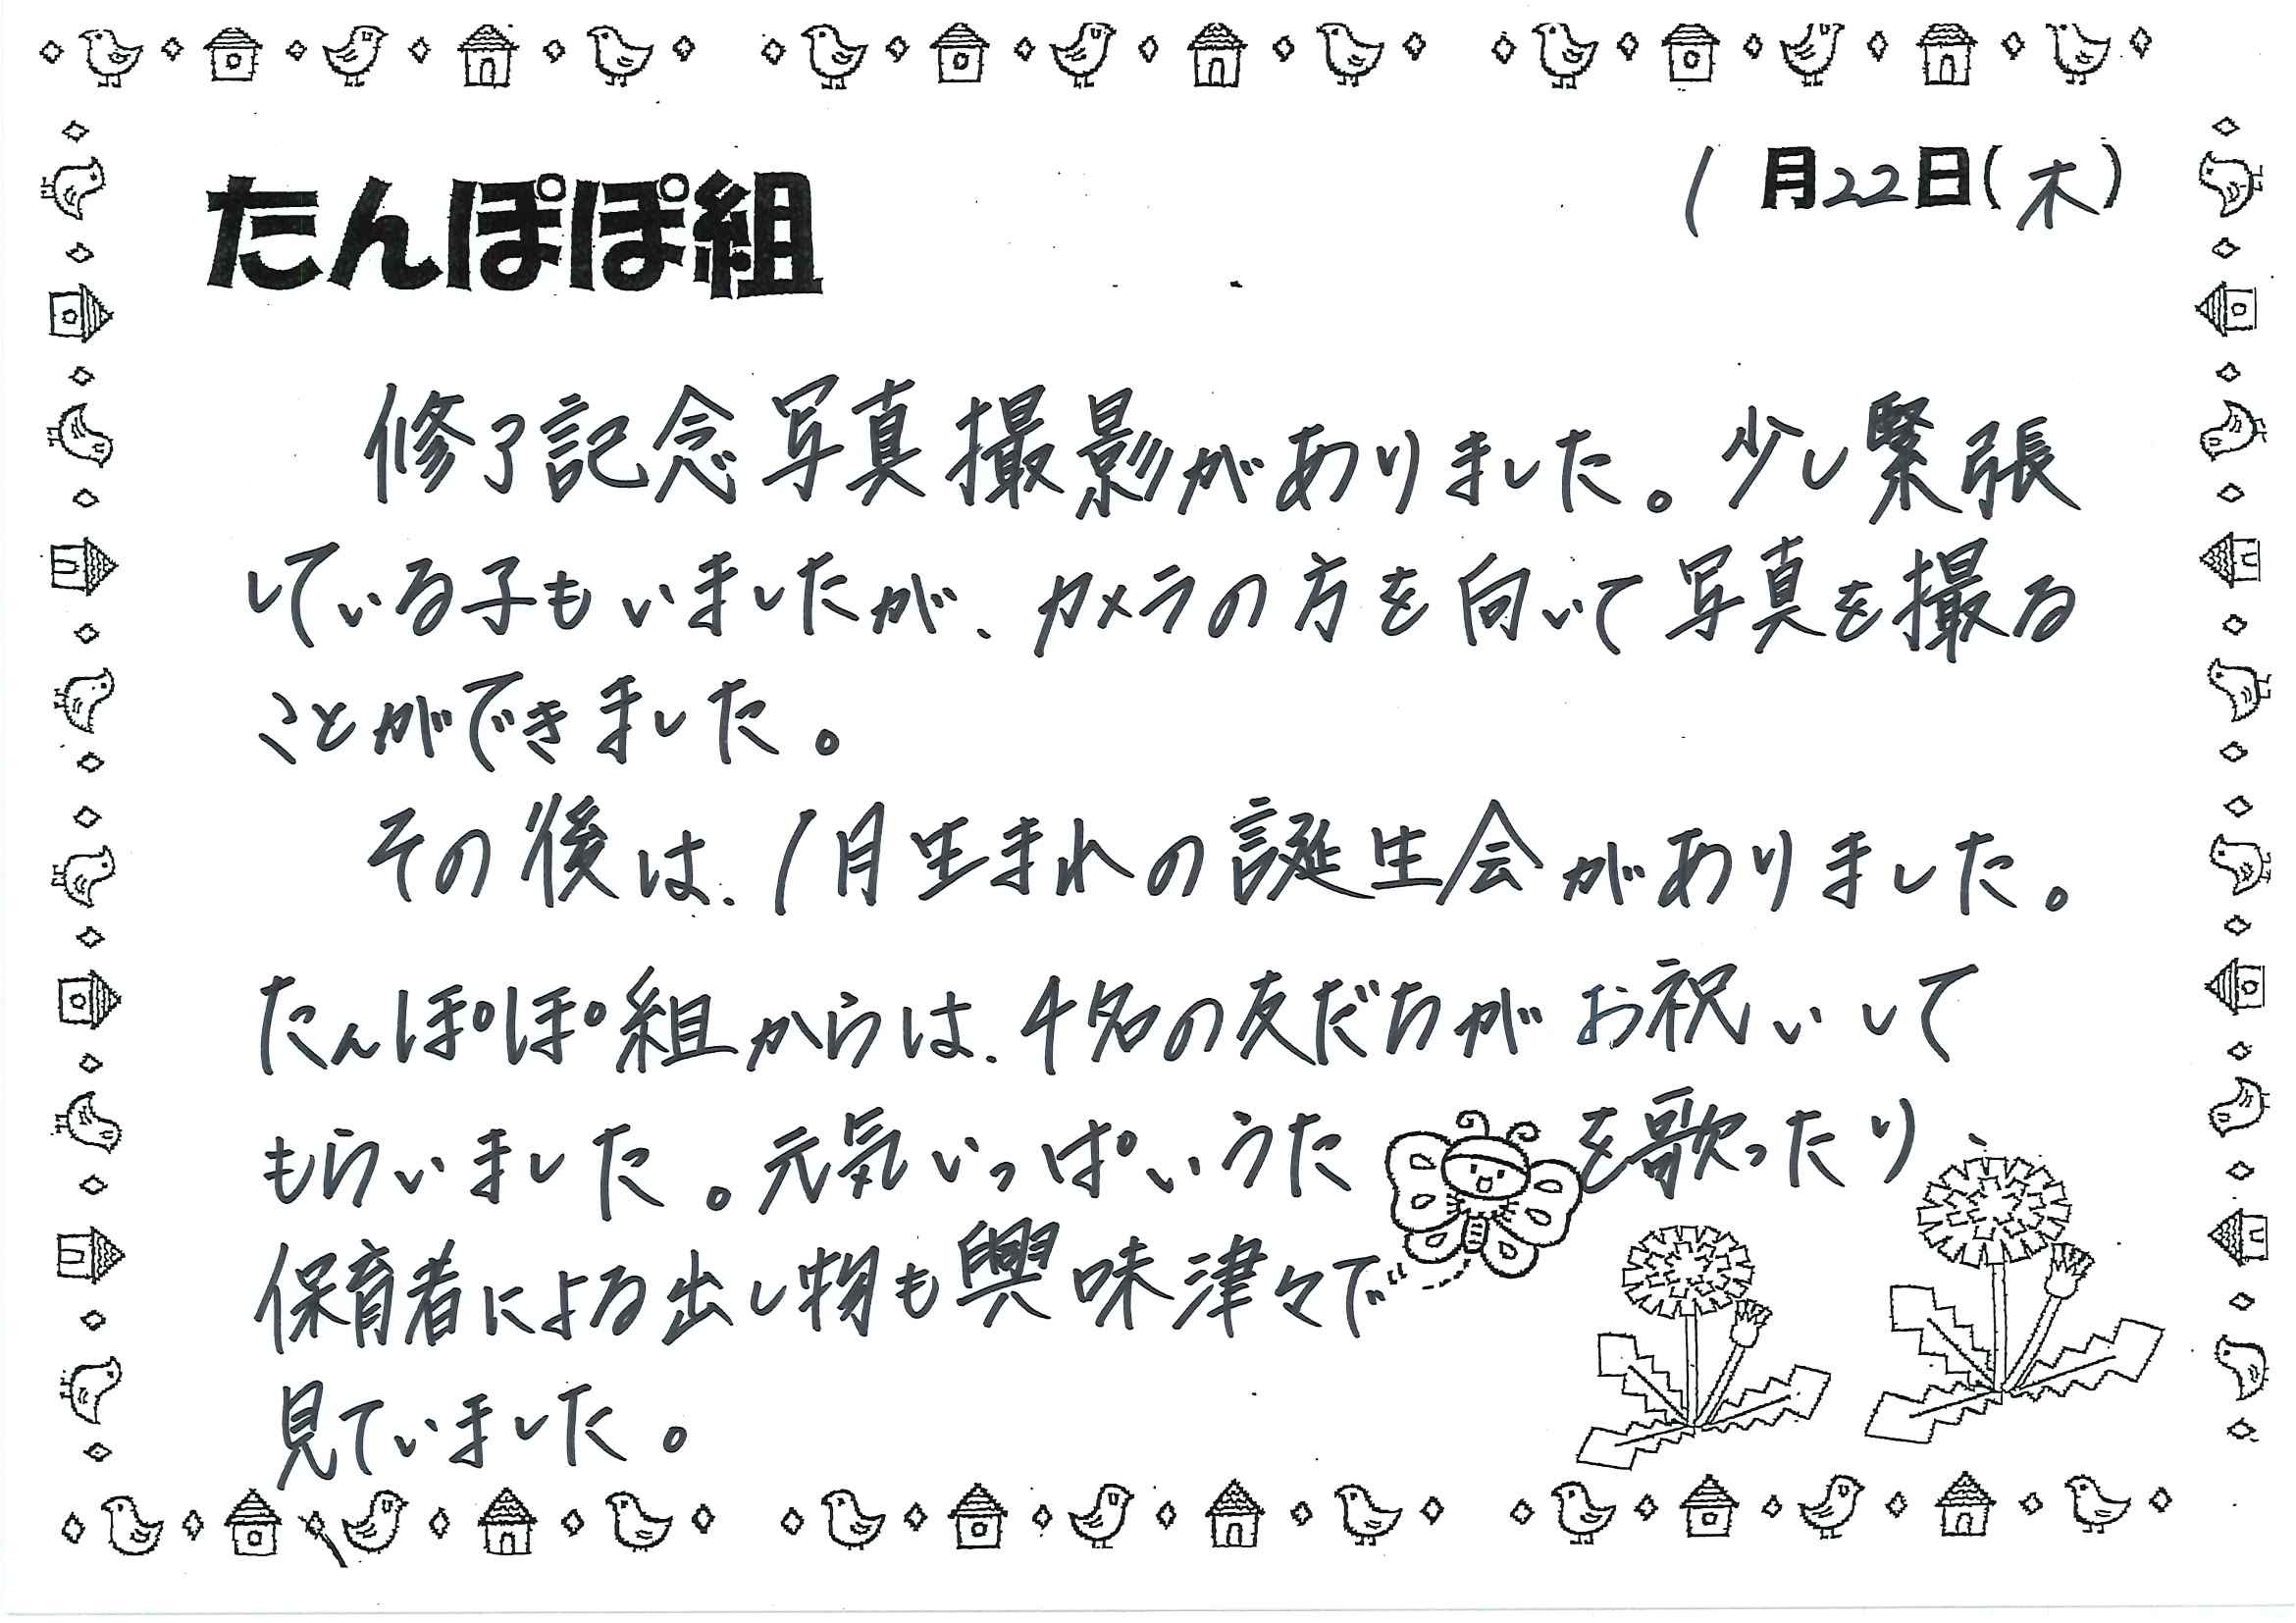 たんぽぽ組
1月22日(木)
修了記念写真撮影がありました。少し緊張
している子もいましたが、カメラの方を向いて写真を撮る
ことができました。
その後は、1月生まれの誕生会がありました。
たんぽぽ組からは、4名の友だちがお祝いして
もらいました。元気いっぱいうたを歌ったり、
保育者による出し物も興味津々で
見ていました。